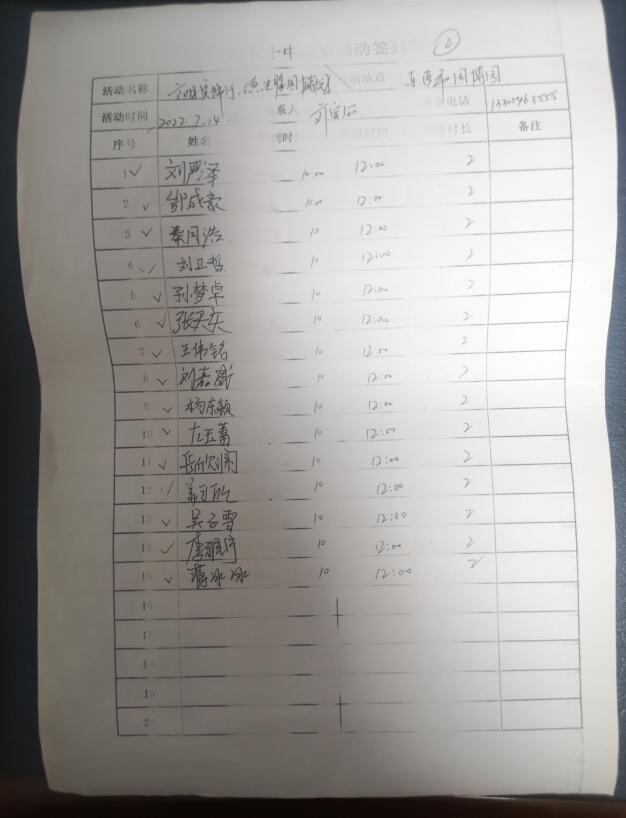 活动签到
②
活动名称 文明实践行 活动地点 东营军园博园
活动时间 2022.7.14 联系人 电话
序号 姓名 时长 备注
1 ✓ 刘严泽 10:00 12:00 2
2 ✓ 郭成豪 10:00 12:00 2
3 ✓ 秦同浩 10 12:00 2
4 ✓ 刘卫哲 10 12:00 2
5 ✓ 孙梦卓 10 12:00 2
6 ✓ 张天奕 10 12:00 2
7 ✓ 王伟铭 10 12:00 2
8 ✓ 刘嘉威 10 12:00 2
9 ✓ 杨东颖 10 12:00 2
10 ✓ 左玉菡 10 12:00 2
11 ✓ 岳欣 10 12:00 2
12 ✓ 10 12:00 2
13 ✓ 吴子雪 10 12:00 2
14 ✓ 唐雅 10 12:00 2
15 ✓ 蒋冰冰 10 12:00 2
16
17
18
19
20